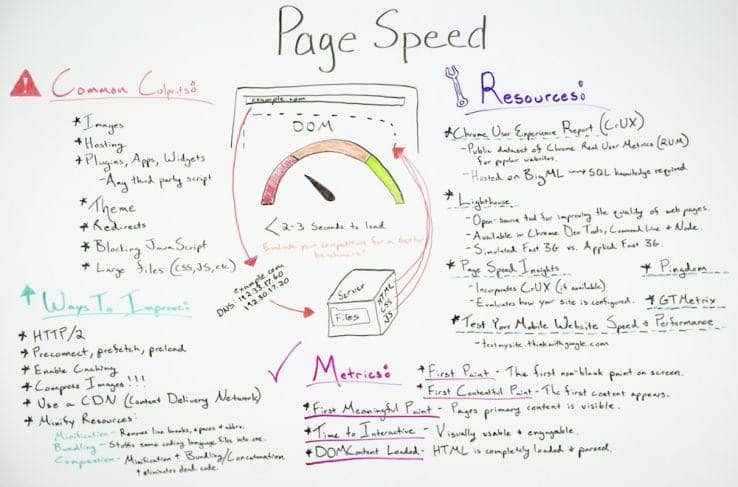 Page Speed
Common Culprits:
* Images
* Hosting
* Plugins, Apps, Widgets
- Any third party script
* Theme
* Redirects
* Blocking JavaScript
* Large Files (CSS, JS, etc.)
Ways To Improve:
* HTTP/2
* Preconnect, prefetch, preload
* Enable Caching
* Compress Images!!!
* Use a CDN (Content Delivery Network)
* Minify Resources:
Minification - Removes line breaks, spaces +
Bundling - Stuffs some coding language files into one.
Compression - Minification + Bundling/Concatenation
+ eliminates dead code.
example.com
DOM
< 2-3 Seconds to load
Evaluate your competitors for a better
benchmark!
example.com
DNS:
Server
Files
HTML
CSS
JS
Resources:
* Chrome User Experience Report (CrUX)
- Public dataset of Chrome Real User Metrics (RUM)
for popular websites.
- Hosted on BigML SQL knowledge required
* Lighthouse
- Open-source tool for improving the quality of web pages.
- Available in Chrome Dev Tools, Command Line + Node.
- Simulated Fast 3G vs. Applied Fast 3G.
* Page Speed Insights
- Incorporates CrUX (if available)
- Evaluates how your site is configured.
* Pingdom
* GTMetrix
* Test Your Mobile Website Speed + Performance
- testmysite.thinkwithgoogle.com
Metrics:
* First Paint - The first non-blank paint on screen.
* First Contentful Paint - The first content appears.
* First Meaningful Paint - Pages primary content is visible.
* Time to Interactive - Visually usable + engagable.
* DOMContent Loaded - HTML is completely loaded + parsed.